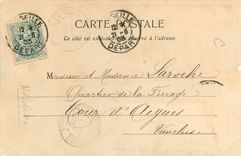 CARTE POSTALE
Ce côté est exclusivement réservé à l'adresse
SEILLE
DÉPART
SEILLE
DÉPART
Monsieur et Madame Laroche
Quartier de la Ferrage
Tour d'Aigues
Vaucluse